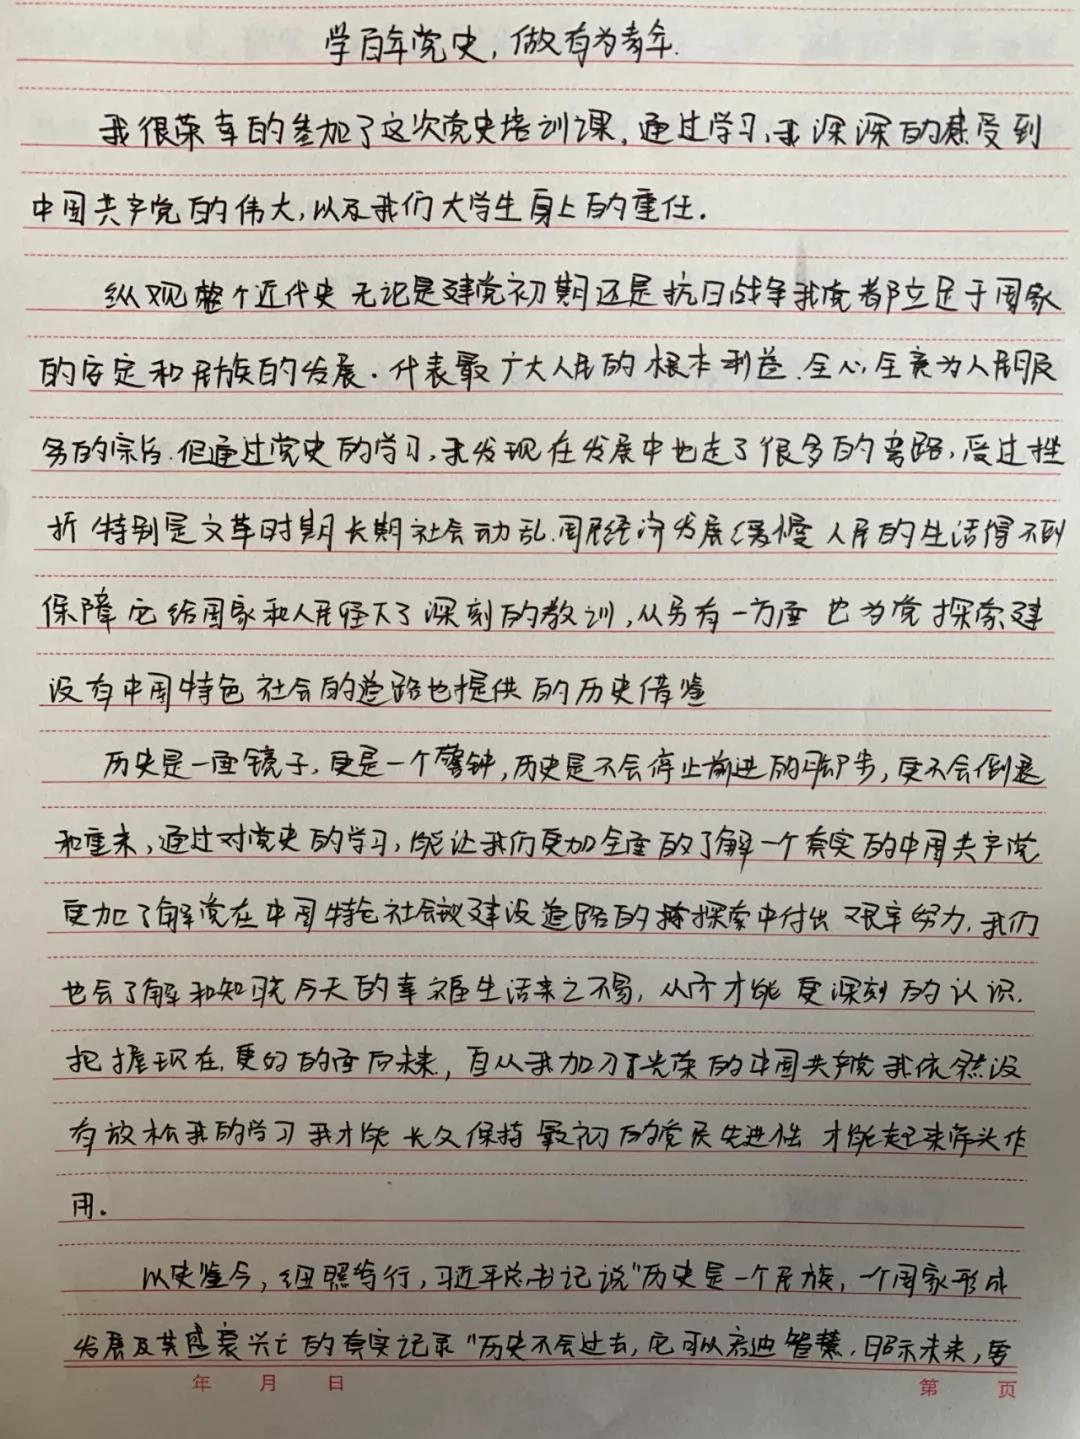 学百年党史，做有为青年.
我很荣幸的参加了这次党史培训课，通过学习，我深深的感受到
中国共产党的伟大，以及我们大学生身上的重任.
纵观整个近代史 无论是建党初期还是抗日战争我党都立足于国家
的安定和民族的发展.代表最广大人民的根本利益.全心全意为人民服
务的宗旨.但通过党史的学习，我发现在发展中也走了很多的弯路，受过挫
折 特别是文革时期长期社会动乱.国民经济发展缓慢 人民的生活得不到
保障 它给国家和人民 了深刻的教训，从另有一方面 也为党探索建
设有中国特色社会的道路也提供的历史借鉴
历史是一面镜子，更是一个警钟，历史是不会停止前进的脚步，更不会倒退
和重来，通过对党史的学习，能让我们更加全面的了解一个真实的中国共产党
更加了解党在中国特色社会议建设道路的探索中付出艰辛努力，我们
也会了解和知晓今天的幸福生活来之不易，从而才能更深刻的认识.
把握现在，更好的面向未来，自从我加入了光荣的中国共产党我依然没
有放松我的学习 我才能 长久保持最初的党员先进性 才能起来带头作
用.
以史鉴今，细照笃行，习近平总书记说"历史是一个民族，一个国家形成
发展及其盛衰兴亡的真实记录"历史不会过去，它可以启迪智慧，昭示未来，要
年 月 日
第 页